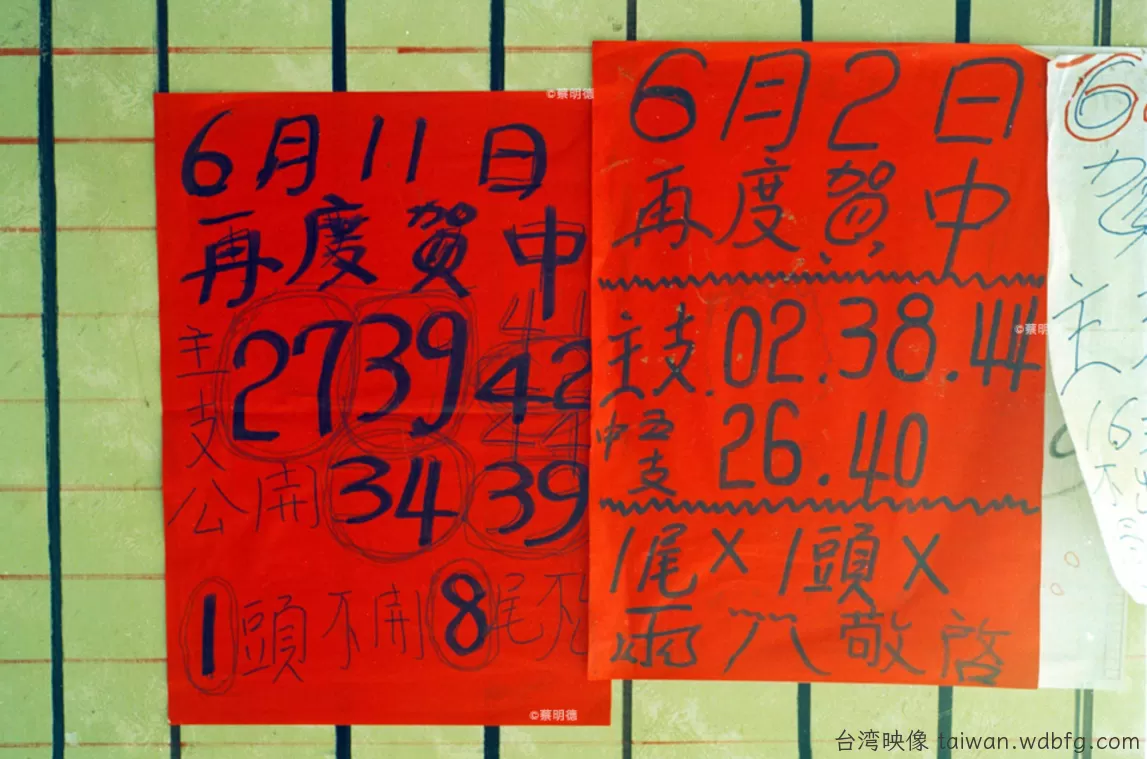 6月11日
再度賀中
主支 27 39 42
公開 34 39
1頭不開8尾不
6月2日
再度賀中
主支.02.38.44
中五支 26.40
1尾X 1頭X
雨 敬啓
6
賀
主
16
不
©蔡明德
©蔡明
©蔡明德
台湾映像 taiwan.wdbfg.com